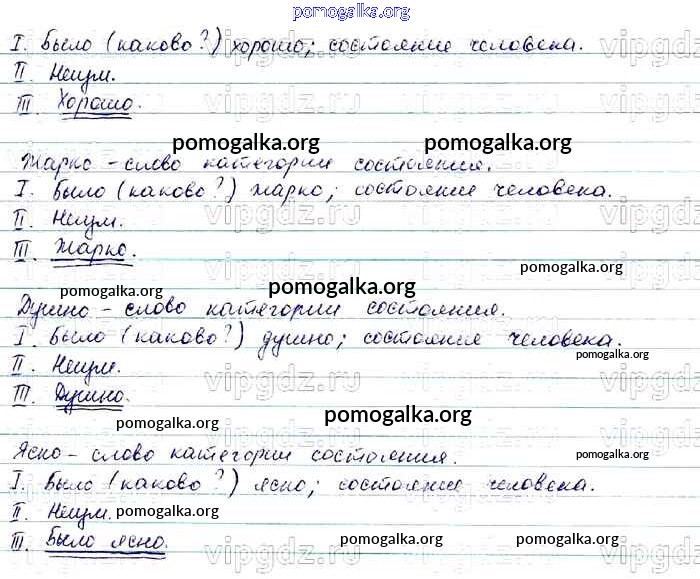 pomogalka.org
I. Было (каково?) хорошо; состояние человека.
II. Неизм.
III. Хорошо.
pomogalka.org pomogalka.org
Жарко – слово категории состояния.
I. Было (каково?) жарко; состояние человека.
II. Неизм.
III. Жарко.
pomogalka.org
pomogalka.org pomogalka.org
Душно – слово категории состояния.
I. Было (каково?) душно; состояние человека.
pomogalka.org
II. Неизм.
III. Душно.
pomogalka.org pomogalka.org
Ясно – слово категории состояния.
pomogalka.org
I. Было (каково?) ясно; состояние человека.
II. Неизм. pomogalka.org pomogalka.org
III. Было ясно.
vipgdz.ru